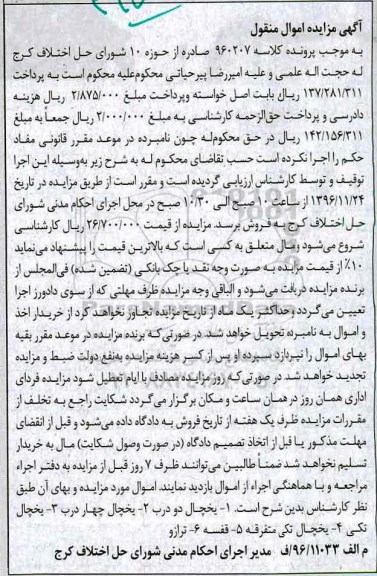 آگهی مزایده اموال منقول
به موجب پرونده کلاسه ۹۶۰۲۰۷ صادره از حوزه ۱۰ شورای حل اختلاف کرج
له حجت اله علمی و علیه امیررضا پیرحیاتی محکوم‌علیه محکوم است به پرداخت
۱۳۷/۲۸۱/۳۱۱ ریال بابت اصل خواسته وپرداخت مبلغ ۲/۸۷۵/۰۰۰ ریال هزینه
دادرسی و پرداخت حق‌الزحمه کارشناسی به مبلغ ۲/۰۰۰/۰۰۰ ریال جمعاً به مبلغ
۱۴۲/۱۵۶/۳۱۱ ریال در حق محکوم‌له چون نامبرده در موعد مقرر قانونی مفاد
حکم را اجرا نکرده است حسب تقاضای محکوم له به شرح زیر به‌وسیله این اجرا
توقیف و توسط کارشناس ارزیابی گردیده است و مقرر است از طریق مزایده در تاریخ
۱۳۹۶/۱۱/۲۴ از ساعت ۱۰ صبح الی ۱۰/۳۰ صبح در محل اجرای احکام مدنی شورای
حل اختلاف کرج به فروش برسد. مزایده از قیمت ۲۶/۷۰۰/۰۰۰ ریال کارشناسی
شروع می‌شود ومال متعلق به کسی است که بالاترین قیمت را پیشنهاد می‌نماید
۱۰٪ از قیمت مزایده به صورت وجه نقد یا چک بانکی (تضمین شده) فی‌المجلس از
برنده مزایده دریافت می‌شود و الباقی وجه مزایده ظرف مهلتی که از سوی دادورز اجرا
تعیین می‌گردد و حداکثر یک ماه از تاریخ مزایده تجاوز نخواهد کرد از خریدار اخذ
و اموال به نامبرده تحویل خواهد شد. در صورتی‌که برنده مزایده در موعد مقرر بقیه
بهای اموال را نپردازد سپرده او پس از کسر هزینه مزایده به‌نفع دولت ضبط و مزایده
تجدید خواهد شد در صورتی‌که روز مزایده مصادف با ایام تعطیل شود مزایده فردای
اداری همان روز در همان ساعت و مکان برگزار می‌گردد شکایت راجع به تخلف از
مقررات مزایده ظرف یک هفته از تاریخ فروش به دادگاه داده می‌شود و قبل از انقضای
مهلت مذکور یا قبل از اتخاذ تصمیم دادگاه (در صورت وصول شکایت) مال به خریدار
تسلیم نخواهد شد ضمناً طالبین می‌توانند ظرف ۷ روز قبل از مزایده به دفتر اجراء
مراجعه و با هماهنگی اجراء از اموال بازدید نمایند. اموال مورد مزایده و بهای آن طبق
نظر کارشناس بدین شرح است. ۱- یخچال دو درب ۲- یخچال چهار درب ۳- یخچال
تکی ۴- یخچال تکی متفرقه ۵- قفسه ۶- ترازو
م الف ۹۶/۱۱۰۳۳/ف مدیر اجرای احکام مدنی شورای حل اختلاف کرج